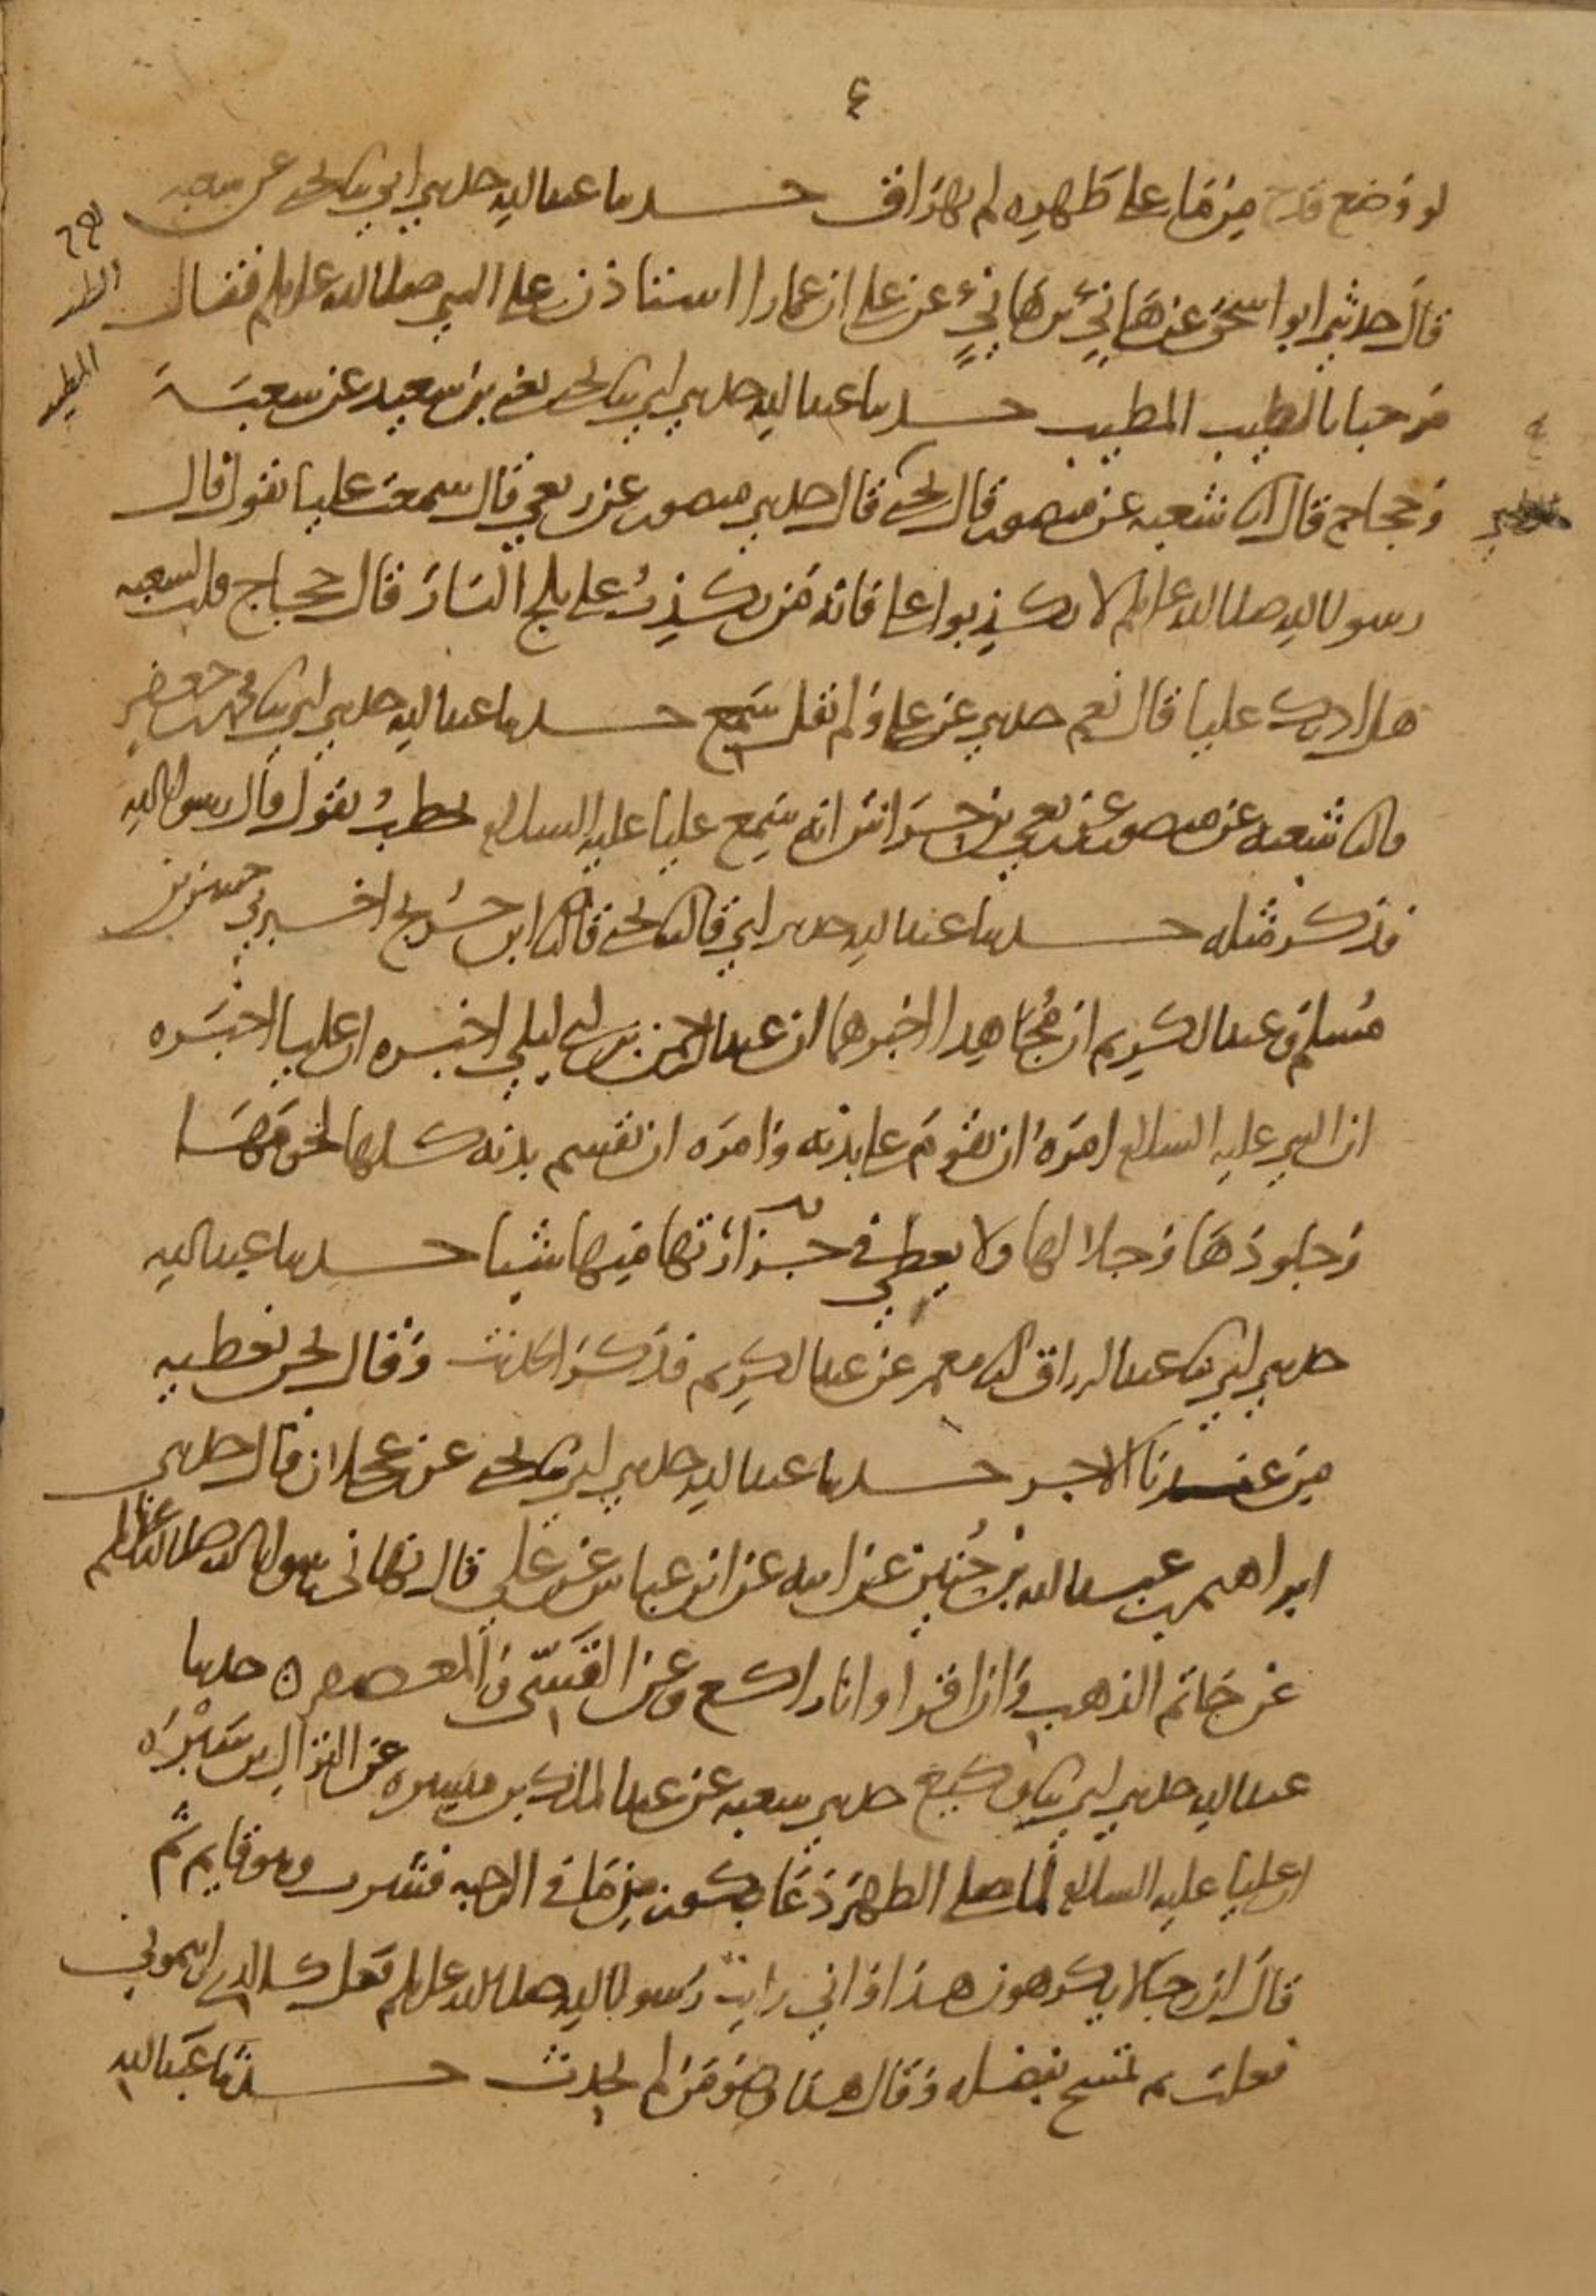 ٤
لو وضع قدح من ماء على ظهره لم يهراق حدثنا عبد الله حدثني ابي ثنا يحيى عن شعبه
قال حدثني ابو اسحق عن هانئ بن هانئ عن علي ان عمارا استاذن على النبي صلى الله عليه وسلم فقال
الطيب
المطيب
مرحبا بالطيب المطيب حدثنا عبد الله حدثني ابي ثنا يحيى يعني بن سعيد عن شعبة
وحجاج قال انا شعبه عن منصور قال يحيى قال حدثني منصور عن ربعي قال سمعت عليا يقول قال
رسول الله صلى الله عليه وسلم لا تكذبوا علي فانه من يكذب علي يلج النار قال حجاج قلت لشعبه
هل ادرك عليا قال نعم حدثني عن علي ولم يقل سمع حدثنا عبد الله حدثني ابي ثنا محمد بن جعفر
قال ثنا شعبه عن منصور عن ربعي بن حراش انه سمع عليا عليه السلام يخطب يقول قال رسول الله
فذكر مثله حدثنا عبد الله حدثني ابي قال ثنا يحيى قال ثنا ابن جريج اخبرني حسن بن
مسلم وعبد الكريم ان مجاهدا اخبرهما ان عبد الرحمن بن ابي ليلي اخبره ان عليا اخبره
ان النبي عليه السلام امره ان يقوم على بدنه وامره ان يقسم بدنه كلها لحومها
وجلودها وجلالها ولا يعطي في جزارتها منها شيا حدثنا عبد الله
حدثني ابي ثنا عبد الرزاق انا معمر عن عبد الكريم فذكر الحديث وقال نحن نعطيه
من عندنا الاجر حدثنا عبد الله حدثني ابي ثنا يحيى عن عجلان قال حدثني
ابراهيم بن عبد الله بن حنين عن ابيه عن ابن عباس عن علي قال نهاني رسول الله صلى الله عليه وسلم
عن خاتم الذهب وان اقرا وانا راكع وعن القسي والمعصفر ه حدثنا
عبد الله حدثني ابي ثنا وكيع حدثني شعبه عن عبد الملك بن ميسره عن النزال بن سبره
ان عليا عليه السلام لما صلى الظهر دعا بكوز من ما في الرحبه فشرب وهو قايم ثم
قال ان رجالا يكرهون هذا واني رايت رسول الله صلى الله عليه وسلم فعل كالذي رايتموني
فعلت ثم تمسح بفضله وقال هذا وضو من لم يحدث حدثنا عبد الله